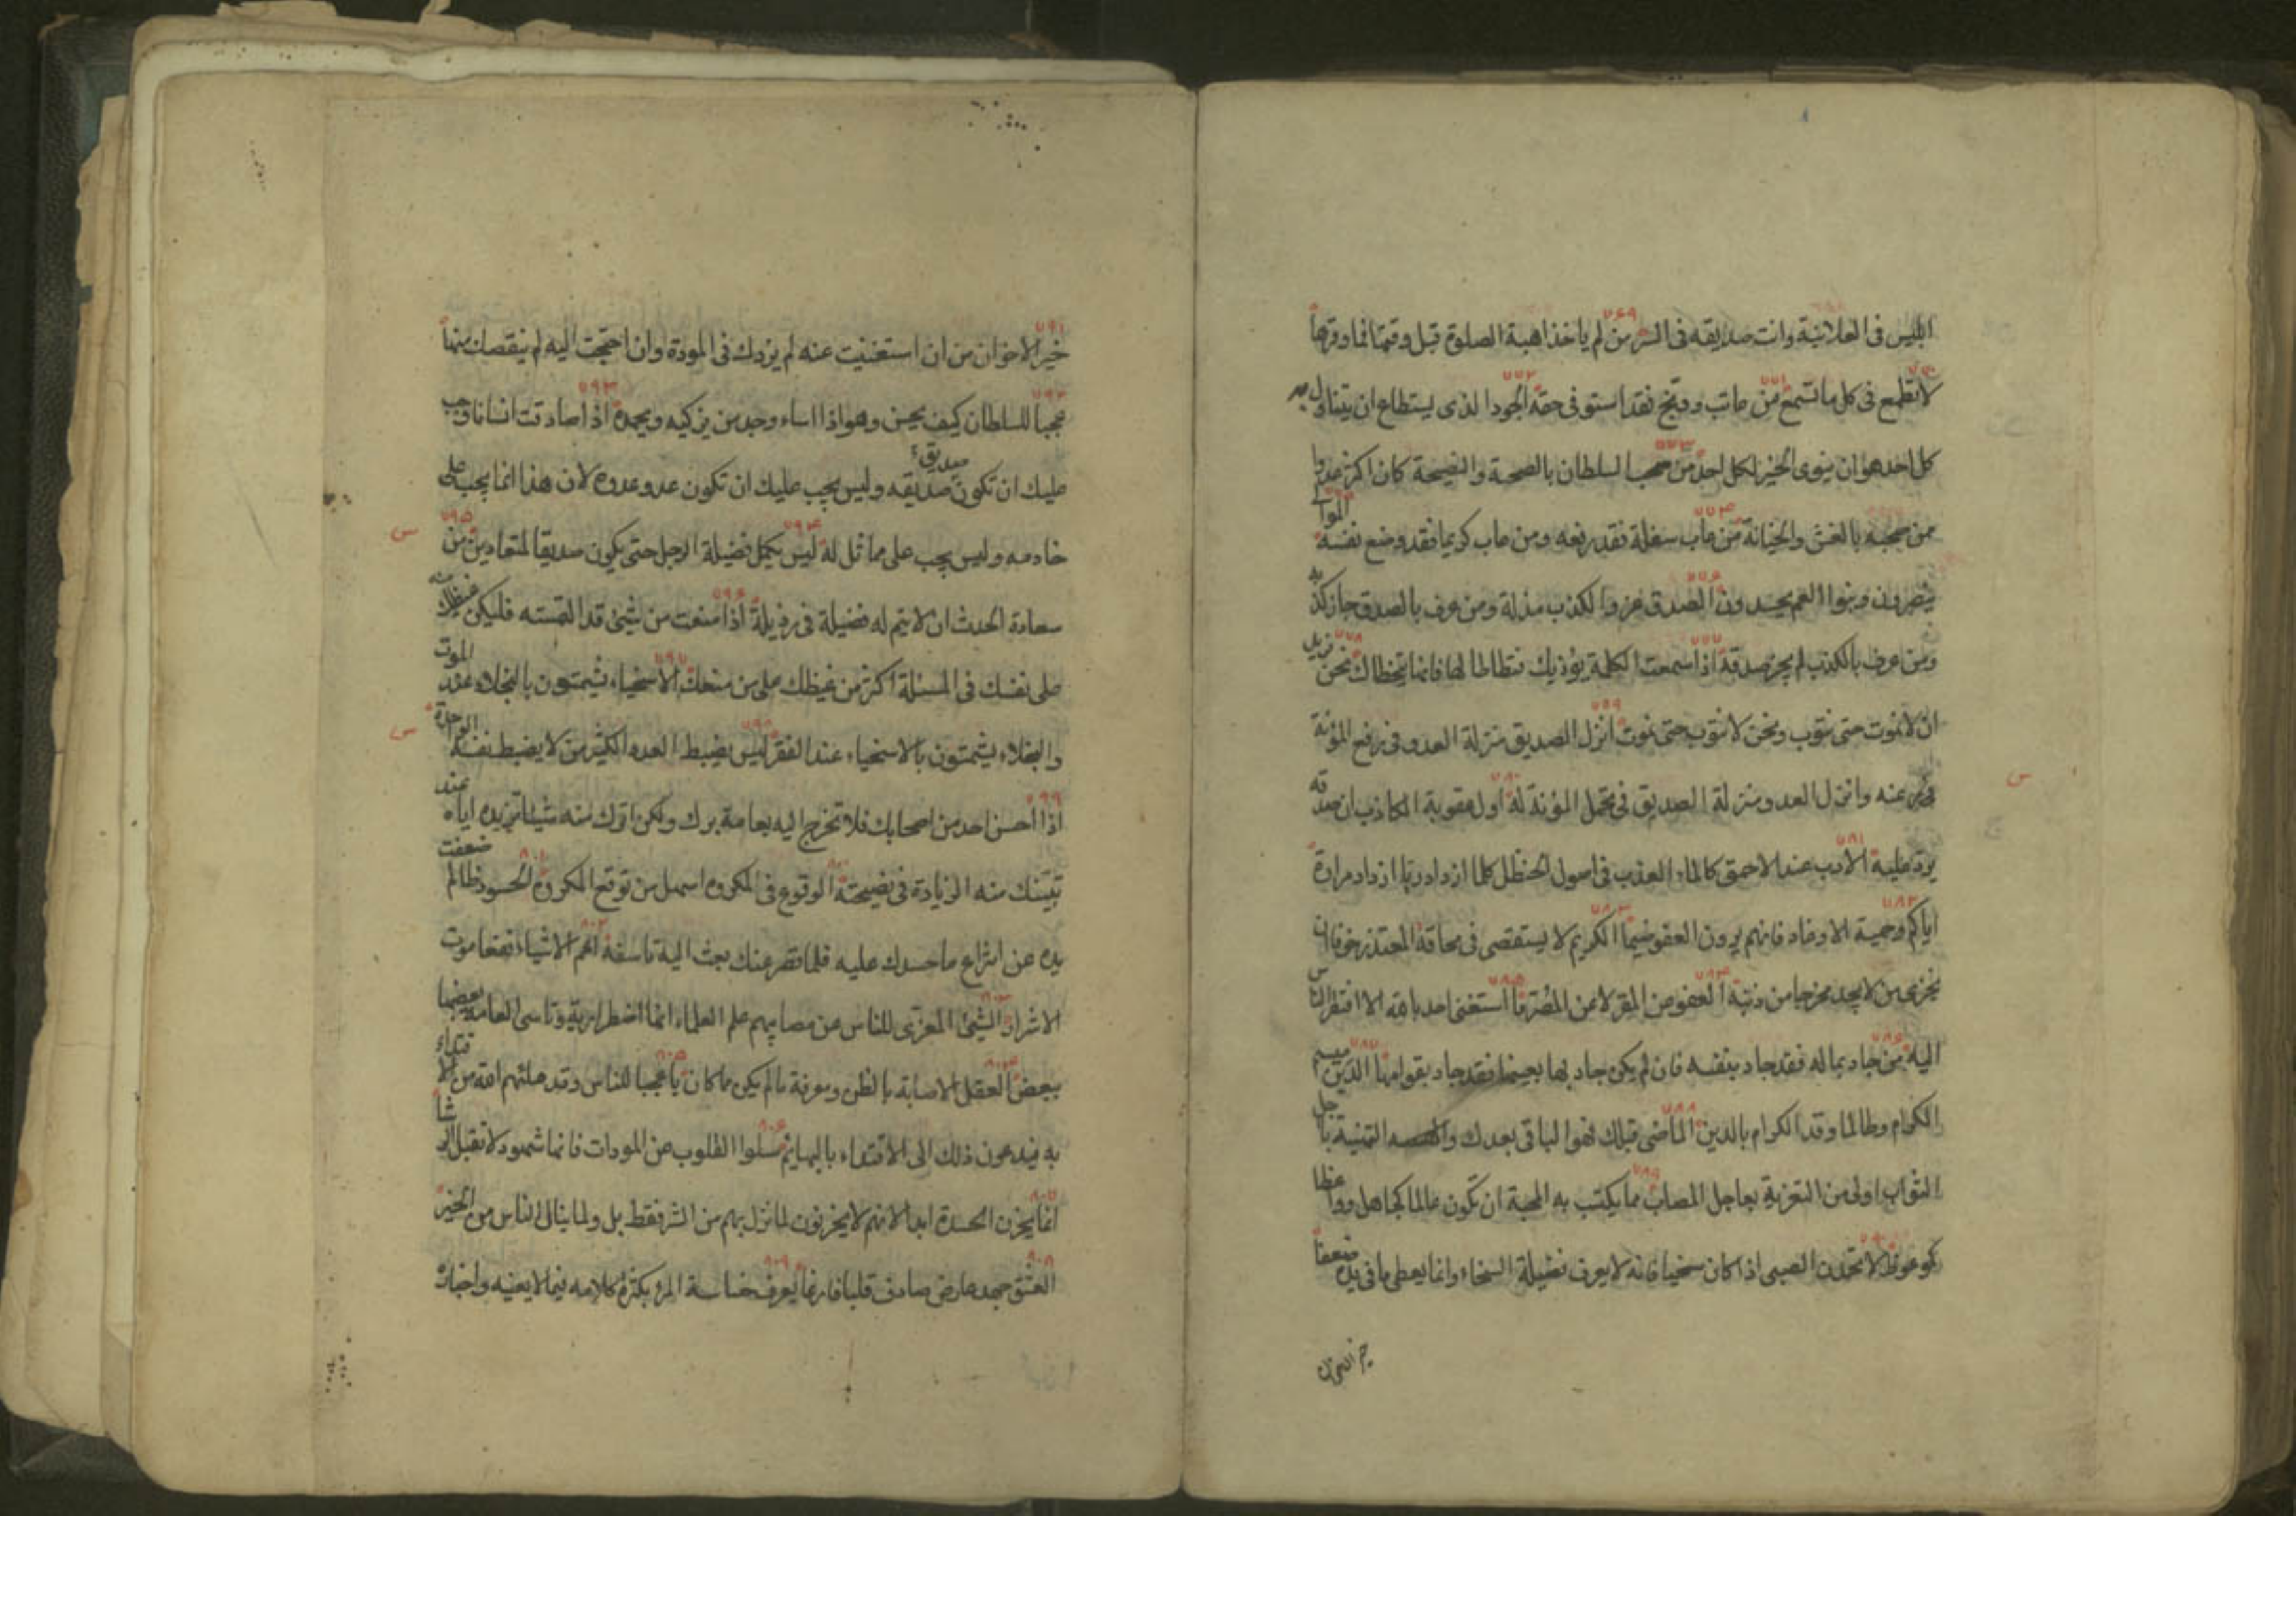 ابليس فى العلانية وانت صديقه فى السر ٧٦٩ من لم ياخذ اهبة الصلوة قبل وقتها فما وقرها
٧٧٠ لا تطمع فى كل ما تسمع ٧٧١ من عاتب ووبخ فقد استوفى حقه ٧٧٢ الجود الذى يستطاع ان يتناول به
كل احد هو ان ينوى الخير لكل احد ٧٧٣ من صحب السلطان بالصحة والنصيحة كان اكثر عدوا
ممن صحبه بالغش والخيانة ٧٧٤ من عاب سفلة فقد رفعه ومن عاب كريما فقد وضع نفسه الموالى
ينصرون وبنوا العم يحسدون ٧٧٦ الصدق عز والكذب مذلة ومن عرف بالصدق جاز كذبه
ومن عرف بالكذب لم يجز صدقه ٧٧٧ اذا سمعت الكلمة يؤذيك فتطاطا لها فانها يتخطاك ٧٧٨ نحن نريد
ان لا نموت حتى نتوب ونحن لا نتوب حتى نموت ٧٧٩ انزل الصديق منزلة العدو فى رفع المؤنة
عنه وانزل العدو منزلة الصديق فى تحمل المؤنة له ٧٨٠ اول عقوبة الكاذب ان صدقه
يرد عليه ٧٨١ الادب عند الاحمق كالماء العذب فى اصول الحنظل كلما ازداد ريا ازداد مرارة
٧٨٢ اياكم وحمية الاوغاد فانهم يرون العفو ضيما ٧٨٣ الكريم لا يستقصى فى محاقة المعتذر خوفا ان
يخزى من لا يجد مخرجا من ذنبه ٧٨٤ العفو عن المقر لا عن المصر ٧٨٥ ما استغنى احد بالله الا افتقر الناس
اليه ٧٨٦ من جاد بماله فقد جاد بنفسه فان لم يكن جاد بها بعينها فقد جاد بقوامها ٧٨٧ الدين ميسم
الكرام وطالما وقد الكرام بالدين ٧٨٨ الماضى قبلك هو الباقى بعدك والتهنية باجل
الثواب اولى من التعزية بعاجل المصاب ٧٨٩ مما يكتب به المحبة ان تكون عالما كجاهل وواعظا
كموعوظ ٧٩٠ لا تحمدن الصبى اذا كان سخيا فانه لا يعرف فضيلة السخاء وانما يعطى ما فى يده ضعفا
٧٩١ خير الاخوان من ان استغنيت عنه لم يزدك فى المودة وان احتجت اليه لم ينقصك منها
٧٩٢ عجبا للسلطان كيف يحسن وهو اذا اساء وجد من يزكيه ويحمده ٧٩٣ اذا صادقت انسانا وجب
عليك ان تكون صديق صديقه وليس يجب عليك ان تكون عدو عدوه لان هذا انما يجب على
خادمه وليس يجب على مماثل له ٧٩٤ ليس يكمل فضيلة الرجل حتى يكون صديقا لمتعاديين ٧٩٥ من
سعادة الحدث ان لا يتم له فضيلة فى رذيلة ٧٩٦ اذا منعت من شيئ قد التمسته فليكن غيظك منه
على نفسك فى المسئلة اكثر من غيظك على من منعك ٧٩٧ الاسخياء يشمتون بالبخلاء عند الموت
والبخلاء يشمتون بالاسخياء عند الفقر ٧٩٨ ليس يضبط العدد الكثير من لا يضبط نفسه الواحدة
٧٩٩ اذا احسن احد من اصحابك فلا تخرج اليه بغاية برك ولكن اترك منه شيئا تزيده اياه عند
تبينك منه الزيادة فى نصيحته ٨٠٠ الوقوع فى المكروه اسهل من توقع المكروه ٨٠١ الحسود ظالم ضعفت
يده عن انتزاع ما حسدك عليه فلما قصر عنك بعث اليه تاسفه ٨٠٢ اعم الاشياء نفعا موت
الاشرار ٨٠٣ الشيئ المعزى للناس عن مصايبهم علم العلماء انها اضطرارية وتاسى العامة بعضها
ببعض ٨٠٤ العقل الاصابة بالظن ومعرفة ما لم يكن بما كان ٨٠٥ يا عجبا للناس وقد مكنهم الله من الاقتداء
به فيدعون ذلك الى الاقتداء بالبهايم ٨٠٦ سلوا القلوب عن المودات فانها شهود لا تقبل الرشا
٨٠٧ انما يحزن الحسدة ابدا لانهم لا يحزنون لما نزل بهم من الشر فقط بل ولما ينال الناس من الخير
٨٠٨ العشق جهد عارض صادف قلبا فارغا ٨٠٩ يعرف خساسة المرء بكثرة كلامه فيما لا يعنيه واخباره